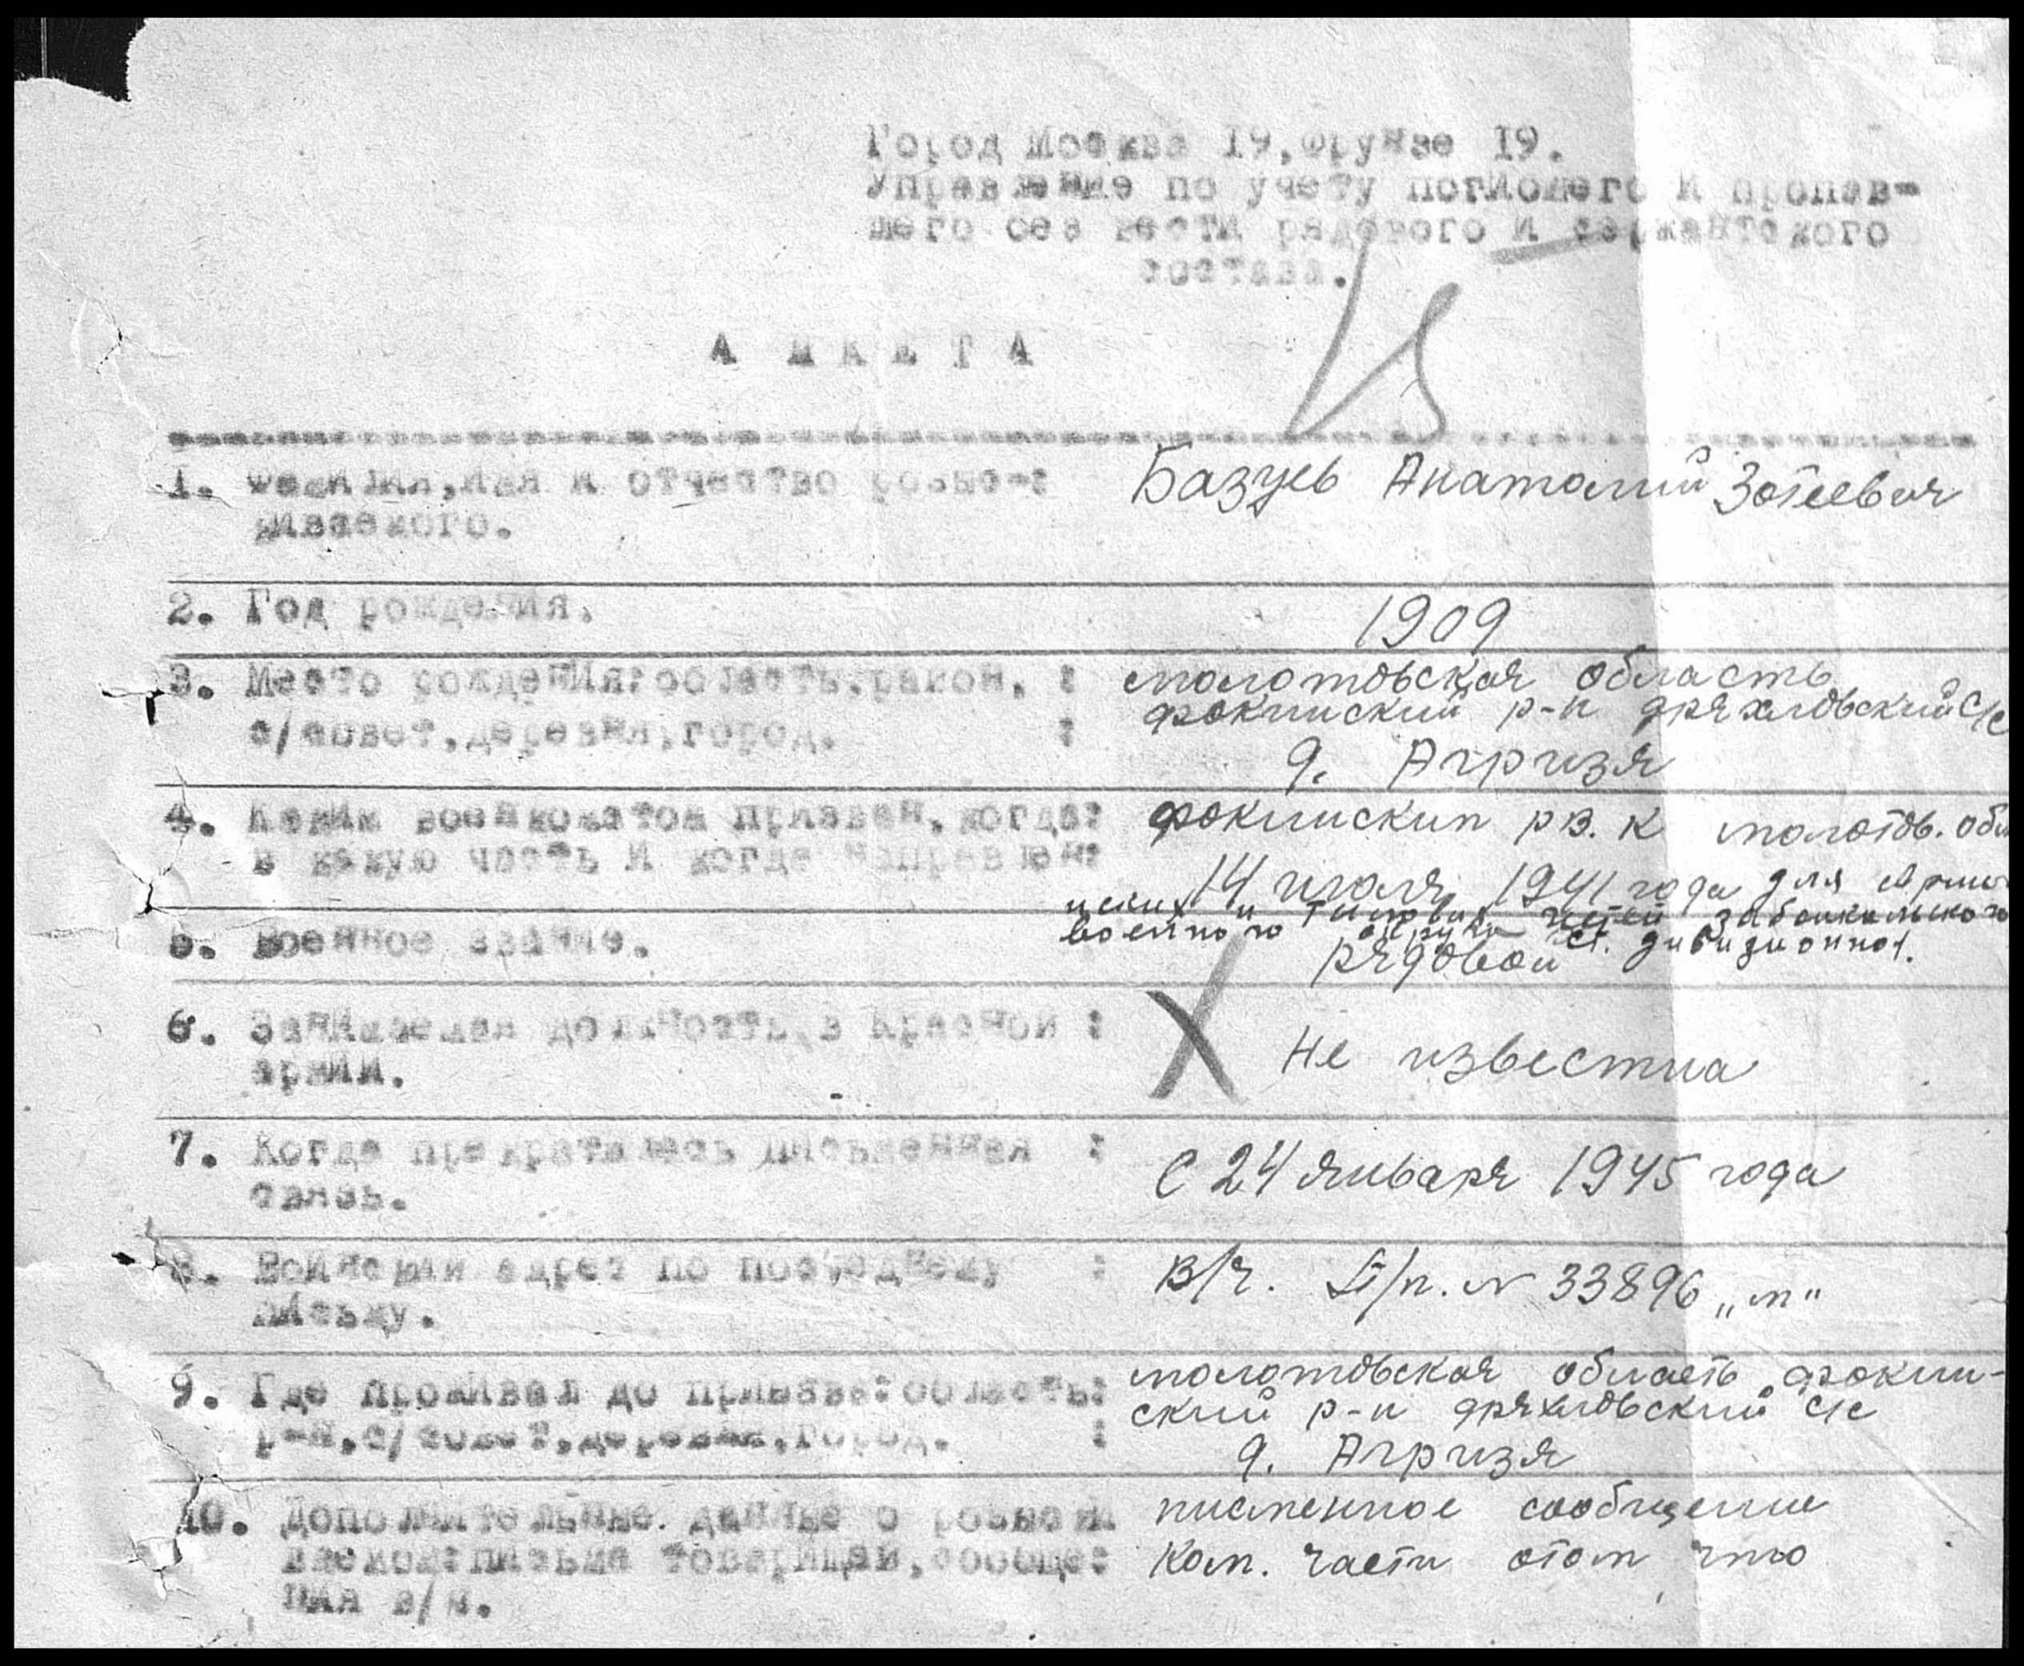 Город Москва 19, Фрунзе 19.
Управление по учету погибшего и пропав-
шего без вести рядового и сержантского
состава.
А Н К Е Т А
1. Фамилия, имя и отчество военно-:
служащего.
Базуев Анатолий Зотеевич
2. Год рождения.
1909
3. Место рождения: область, район, :
с/совет, деревня, город. :
молотовская область
фокинский р-н дряхловский с/с
д. Агризя
4. Каким военкоматом призван, когда:
в какую часть и когда направлен:
фокинским р в. к молотов. обл
14 июля 1941 года для арме
йских и тыловых частей Забайкальского
военного округа ст. дивизионная.
5. Военное звание.
рядовой
6. Занимаемая должность в Красной :
армии.
не известна
7. Когда прекратилась письменная :
связь.
С 24 января 1945 года
8. Воинский адрес по последнему :
письму.
В/ч. П/п. N 33896 „м"
9. Где проживал до призыва: область:
р-н, с/совет, деревня, город. :
молотовская область фокин-
ский р-н дряхловский с/с
д. Агризя
10. Дополнительные данные о
письма товарищей, сообще:
ния в/ч.
писменное сообщение
Ком. части отом что